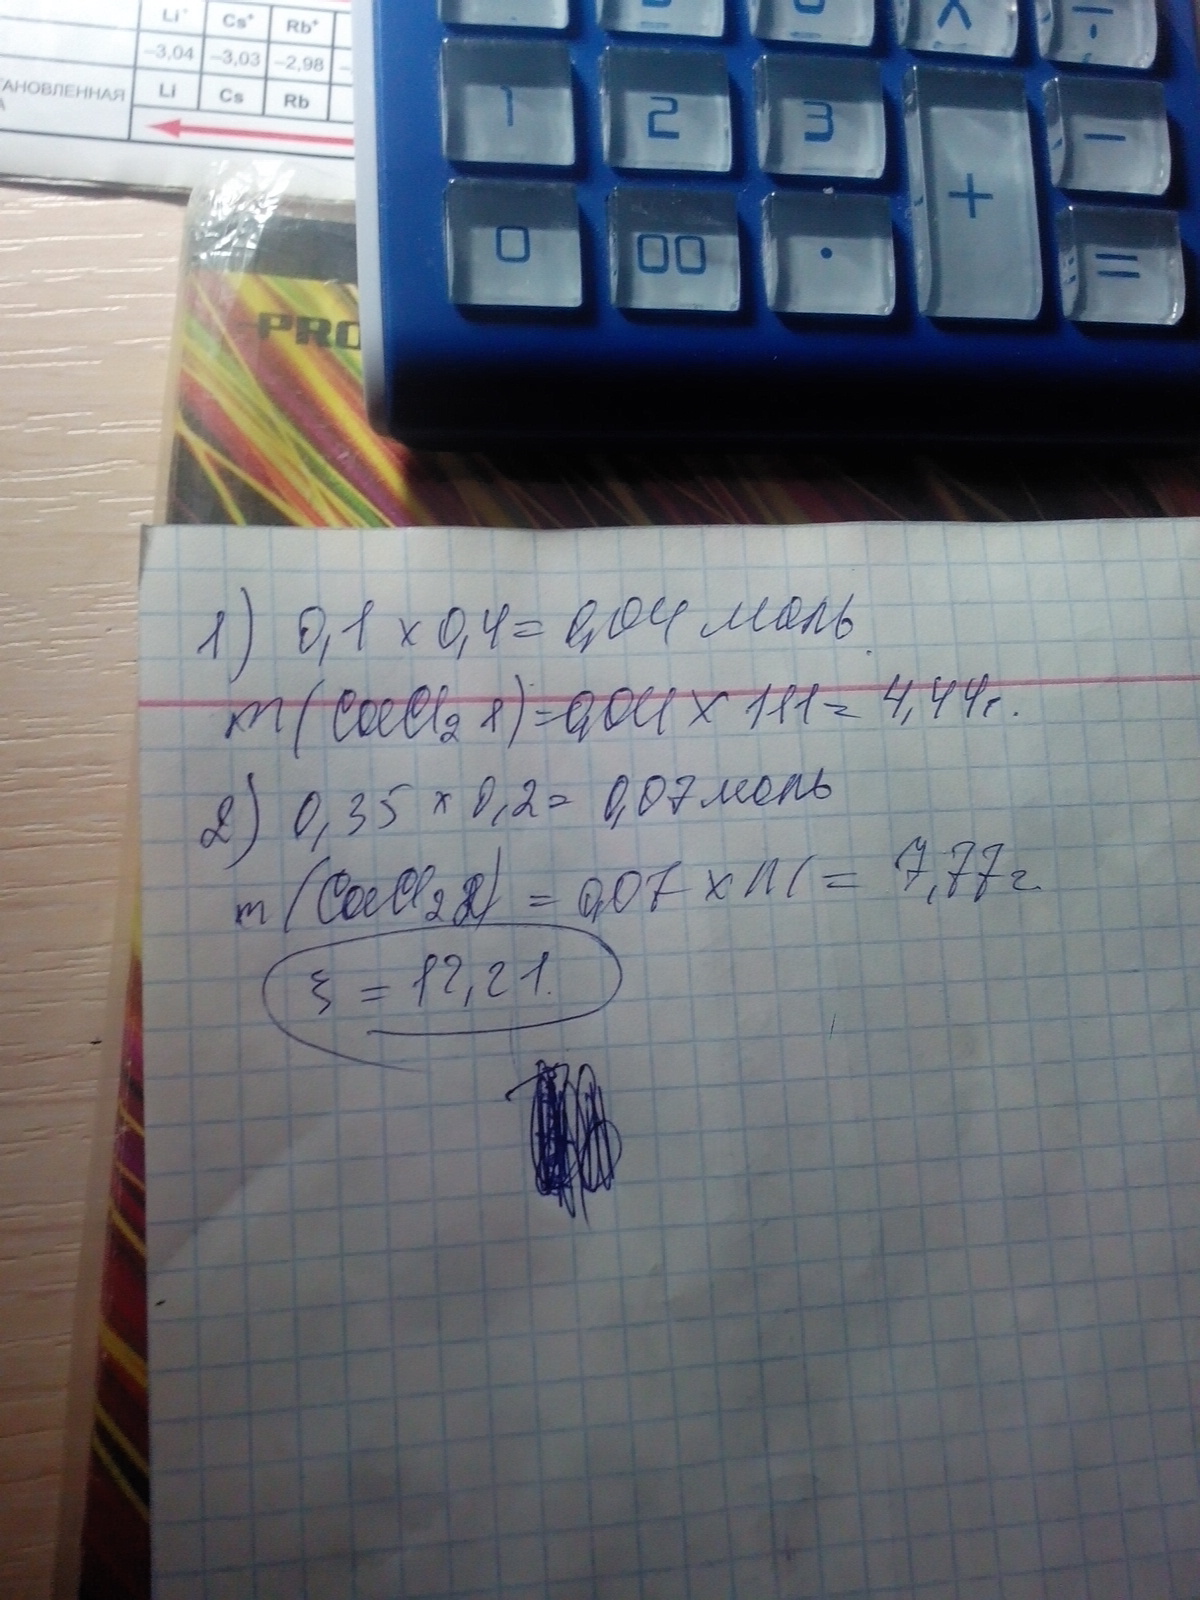 Li⁺ Cs⁺ Rb⁺
–3,04 –3,03 –2,98
ТАНОВЛЕННАЯ
Li Cs Rb
1 2 3 + −
0 00 . =
PRO
1) 0,1 x 0,4 = 0,04 моль.
m(CaCl₂ 1) = 0,04 x 111 = 4,44г.
2) 0,35 x 0,2 = 0,07 моль
m(CaCl₂ 2) = 0,07 x 111 = 7,77г.
ξ = 12,21.